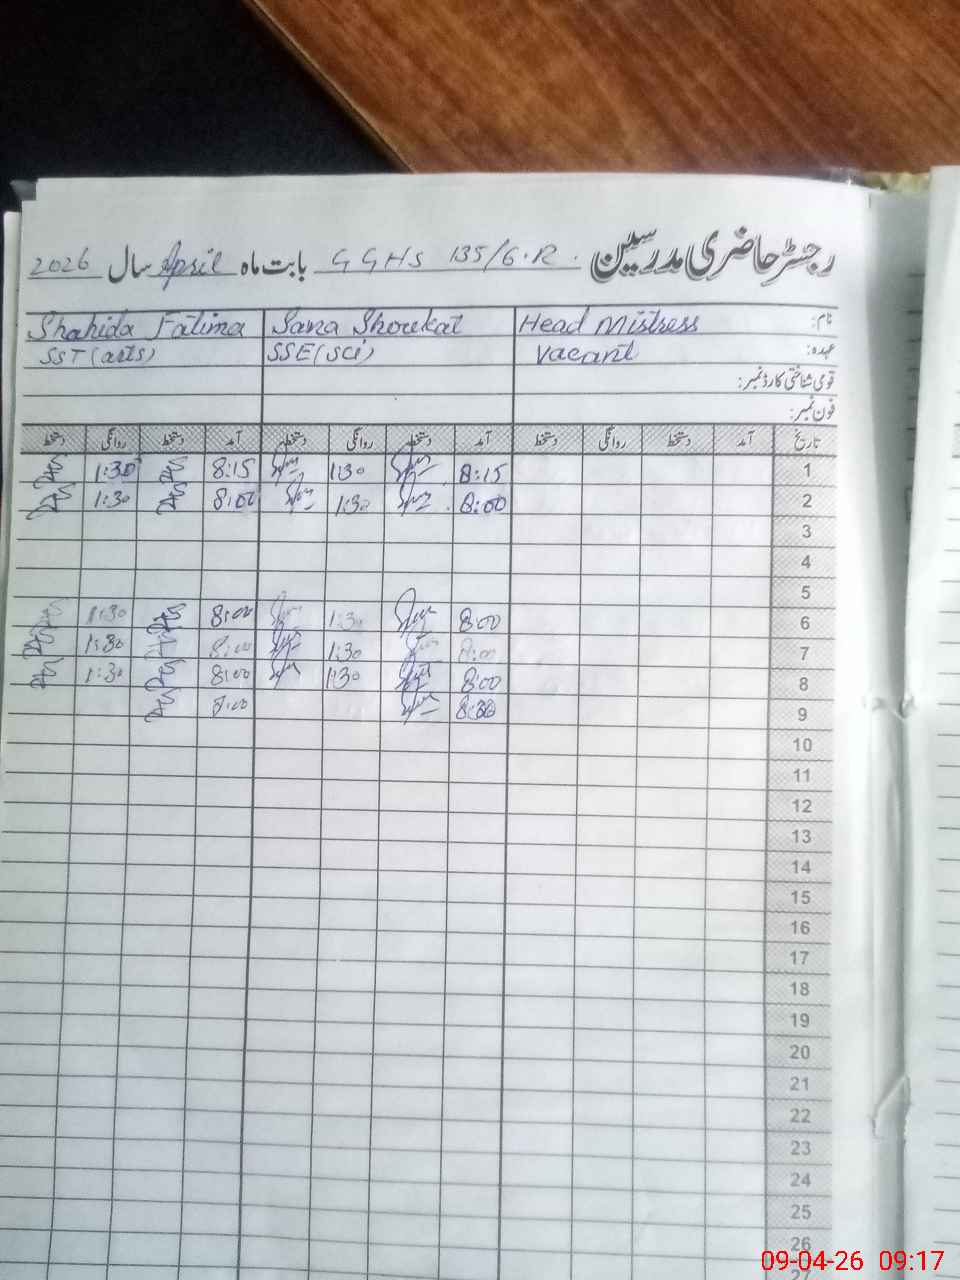 رجسٹر حاضری مدرسین GGHS 135/6.R. بابت ماہ April سال 2026
نام: Head Mistress Sana Shoukat Shahida Fatima
عہدہ: Vacant SSE(Sci) SST(arts)
قومی شناختی کارڈ نمبر:
فون نمبر:
تاریخ آمد دستخط روانگی دستخط آمد دستخط روانگی دستخط آمد دستخط روانگی دستخط
1 8:15 1:30 8:15 1:30
2 8:00 1:30 8:00 1:30
3
4
5
6 8:00 1:30 8:00 1:30
7 8:00 1:30 8:00 1:30
8 8:00 1:30 8:00 1:30
9 8:30 8:00
10
11
12
13
14
15
16
17
18
19
20
21
22
23
24
25
26
27
09-04-26 09:17